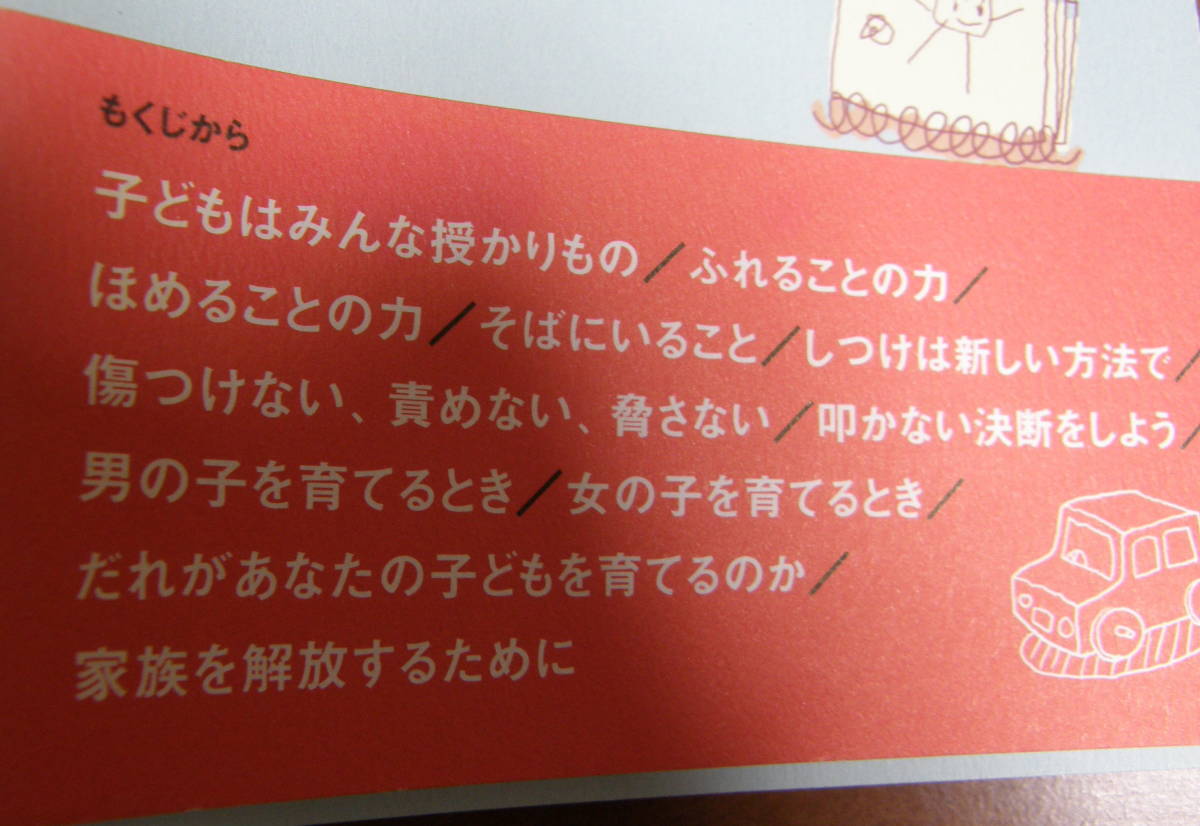 もくじから
子どもはみんな授かりもの/ふれることの力/
ほめることの力/そばにいること/しつけは新しい方法で/
傷つけない、責めない、脅さない/叩かない決断をしよう/
男の子を育てるとき/女の子を育てるとき/
だれがあなたの子どもを育てるのか/
家族を解放するために